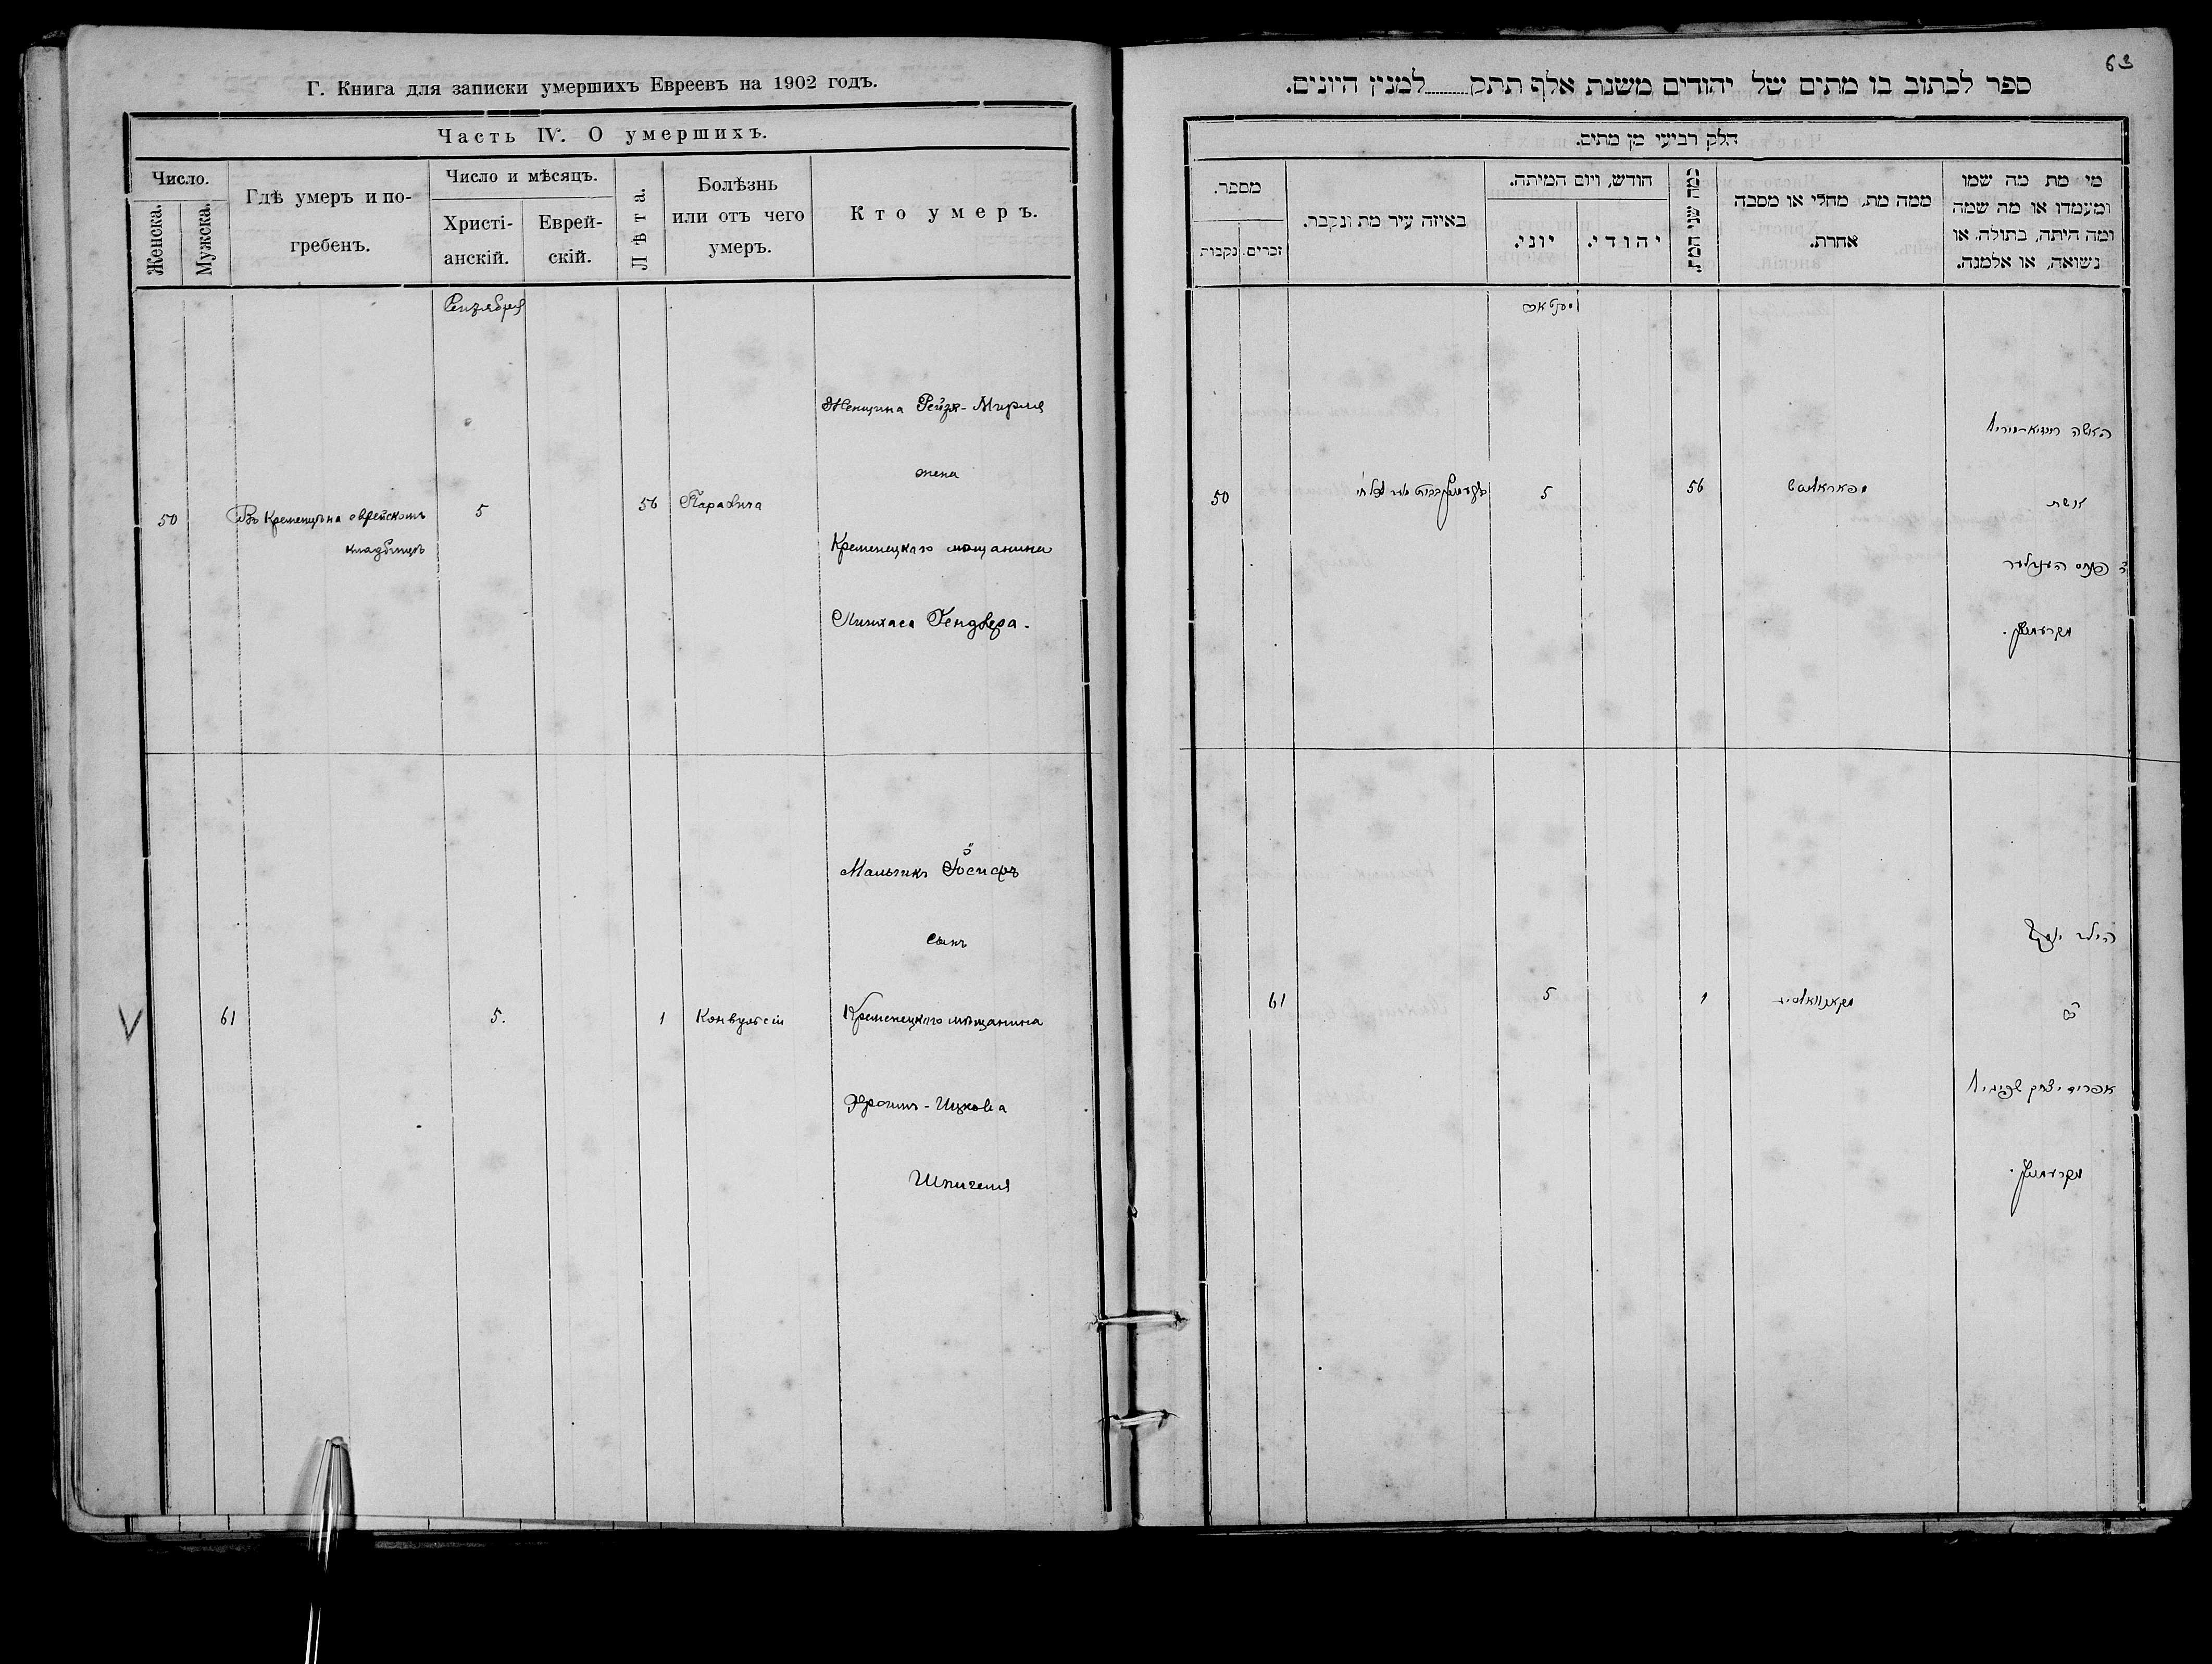 Г. Книга для записки умершихъ Евреевъ на 1902 годъ.
Часть IV. О умершихъ.
Число.
Женска.
Мужска.
Гдѣ умеръ и по-
гребенъ.
Число и мѣсяцъ.
Христі-
анскій.
Еврей-
скій.
Лѣта.
Болѣзнь
или отъ чего
умеръ.
Кто умеръ.
Женщина Рейзя-Мирля
жена
50
Въ Кременцѣ на еврейскомъ
кладбищѣ
5
56
Кременецкаго мѣщанина
Пинхаса Гендлера.
Мальчикъ Іосифъ
сынъ
61
5.
1
Конвульсіи
Кременецкаго мѣщанина
Ицкова
Шпигеля
63
ספר לכתוב בו מתים של יהודים משנת אלף תתק למנין היונים.
חלק רביעי מן מתים.
מספר.
זכרים.
נקבות
באיזה עיר מת ונקבר.
חודש, ויום המיתה.
יוני.
יהודי.
כמה שני המת.
ממה מת, מחלי או מסבה
אחרת.
מי מת מה שמו
ומעמדו או מה שמה
ומה היתה, בתולה, או
נשואה, או אלמנה.
האשה
אשת
50
5
56
הילד יוסף
61
5
1
אפרים יצחק שפיגיל